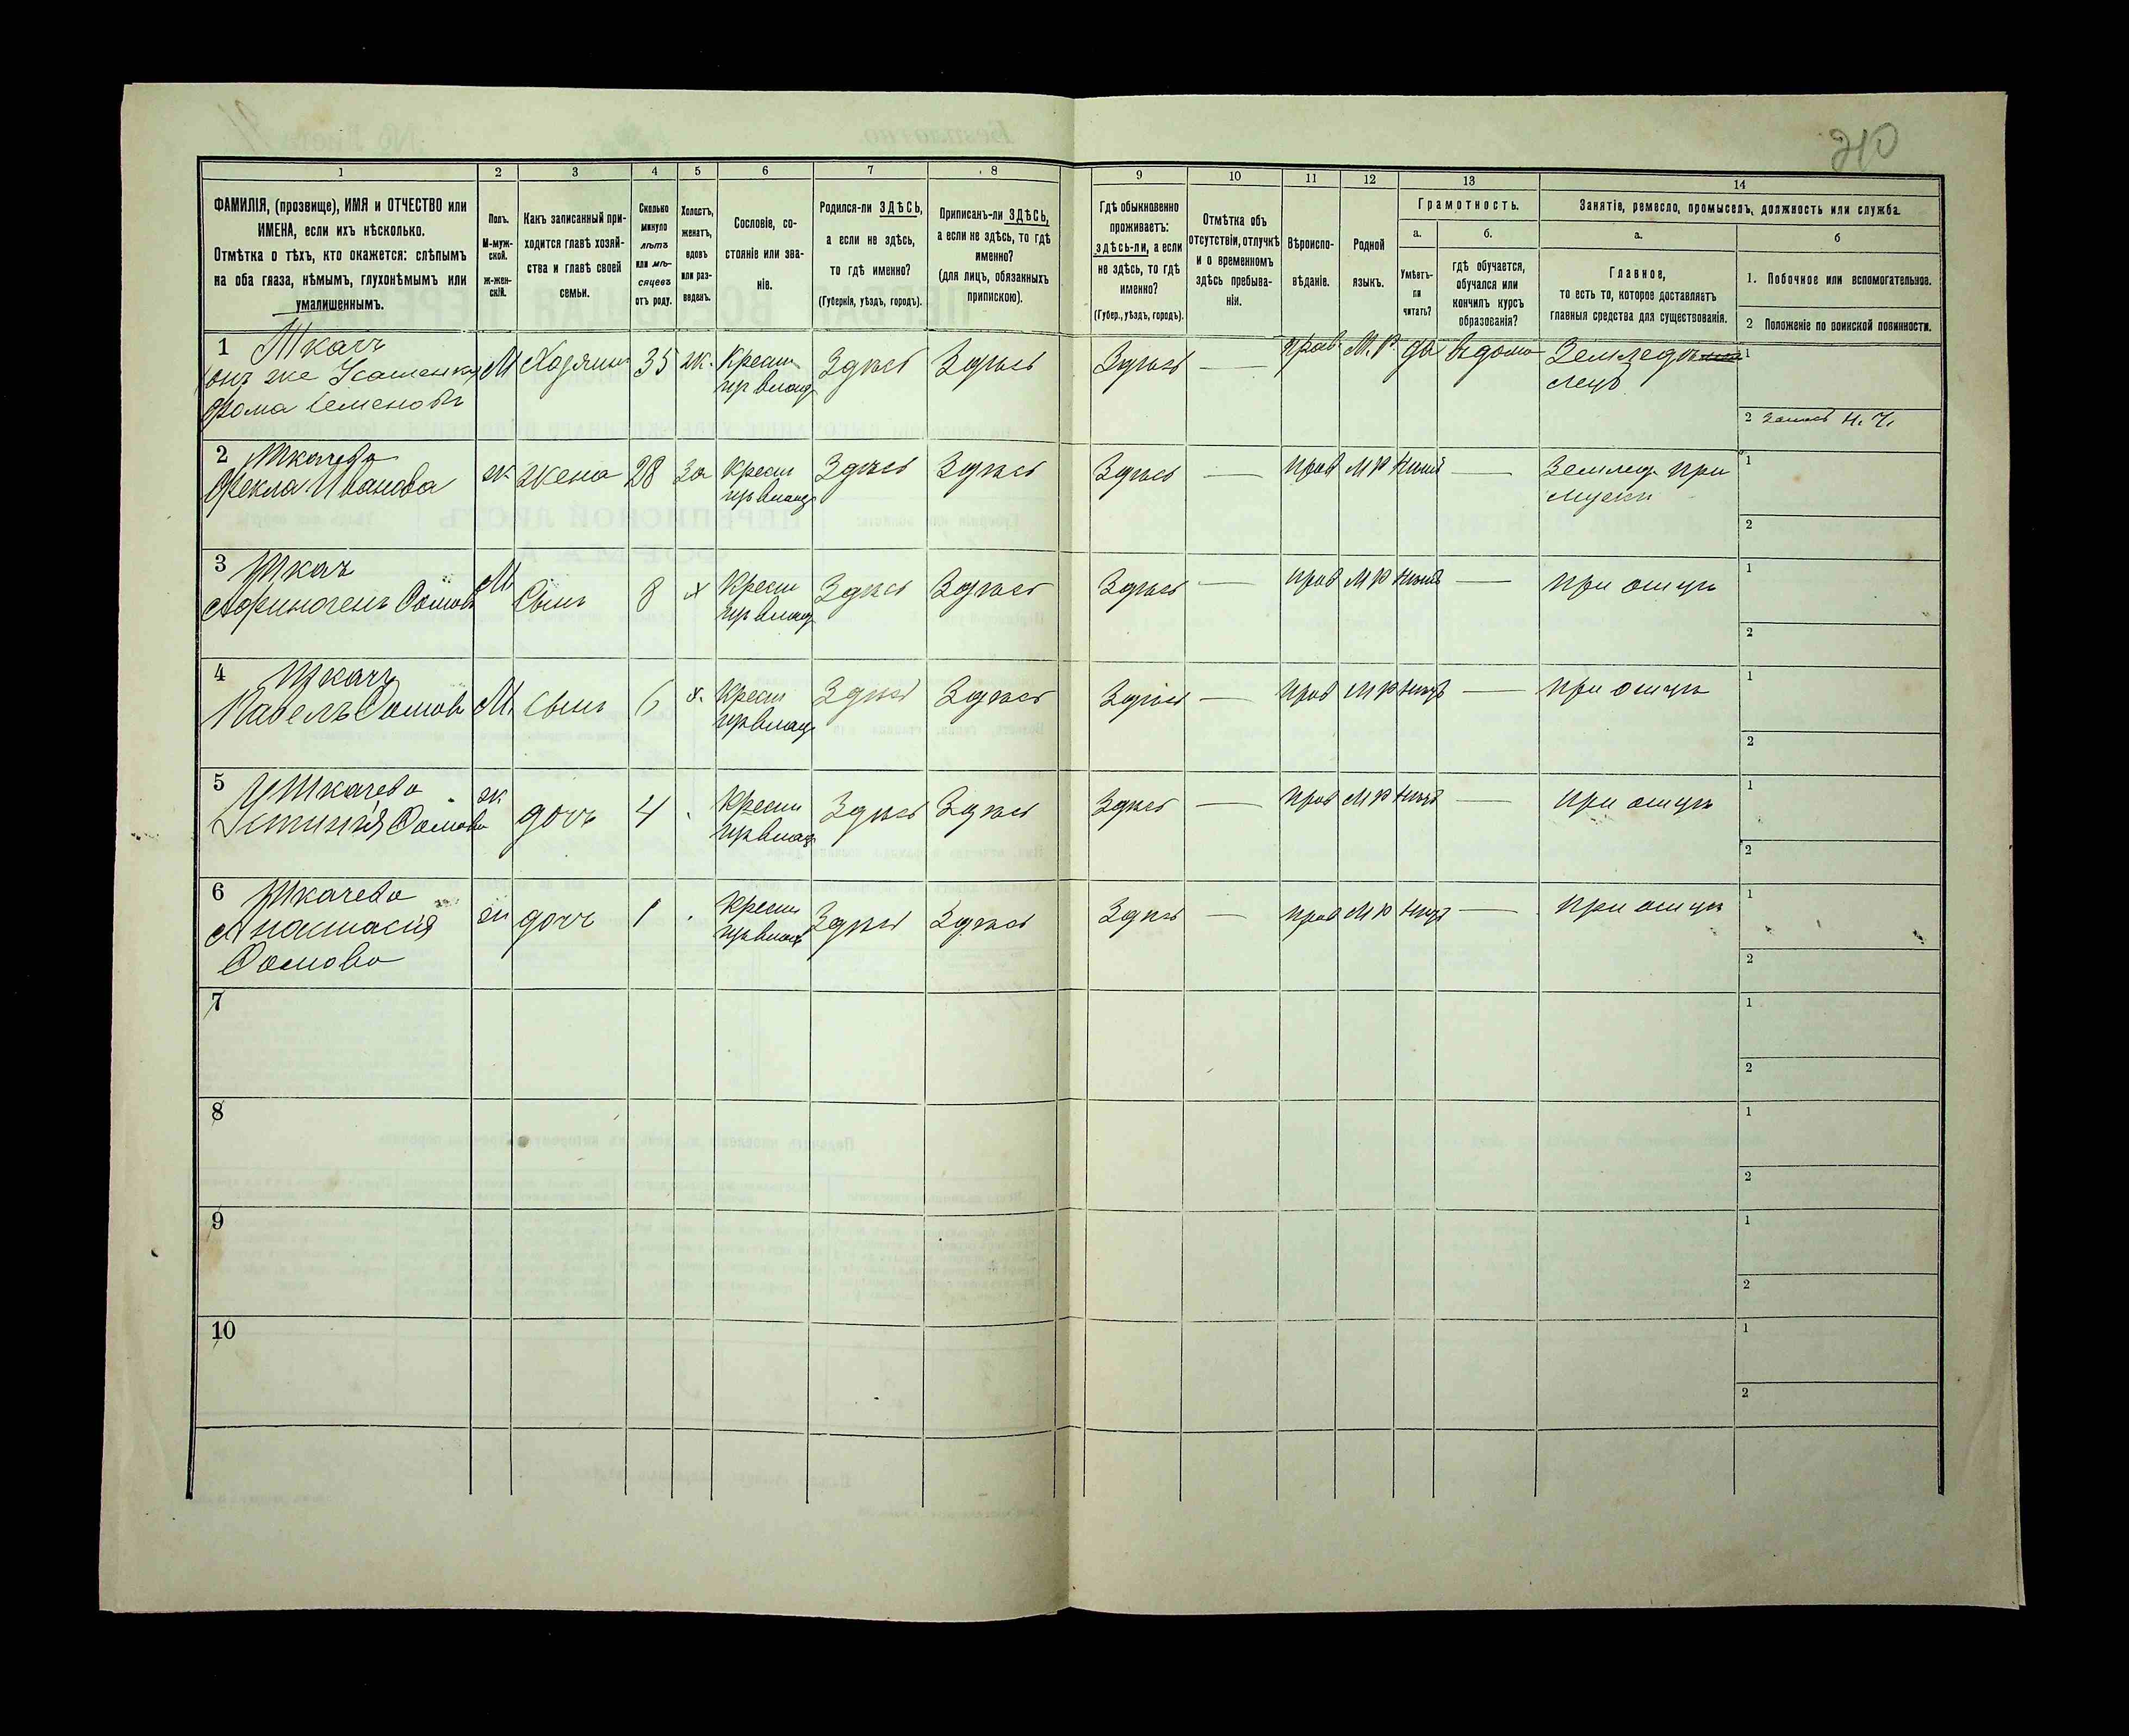 210
1 2 3 4 5 6 7 8 9 10 11 12 13 14
ФАМИЛІЯ, (прозвище), ИМЯ и ОТЧЕСТВО или
ИМЕНА, если ихъ нѣсколько.
Отмѣтка о тѣхъ, кто окажется: слѣпымъ
на оба глаза, нѣмымъ, глухонѣмымъ или
умалишеннымъ.
Полъ.
М-муж-
ской.
ж-жен-
скій.
Какъ записанный при-
ходится главѣ хозяй-
ства и главѣ своей
семьи.
Сколько
минуло
лѣтъ
или мѣ-
сяцевъ
отъ роду.
Холостъ,
женатъ,
вдовъ
или раз-
веденъ.
Сословіе, со-
стояніе или зва-
ніе.
Родился-ли ЗДѢСЬ,
а если не здѣсь,
то гдѣ именно?
(Губернія, уѣздъ, городъ).
Приписанъ-ли ЗДѢСЬ,
а если не здѣсь, то гдѣ
именно?
(для лицъ, обязанныхъ
припискою).
Гдѣ обыкновенно
проживаетъ:
здѣсь-ли, а если
не здѣсь, то гдѣ
именно?
(Губер., уѣздъ, городъ).
Отмѣтка объ
отсутствіи, отлучкѣ
и о временномъ
здѣсь пребыва-
ніи.
Вѣроиспо-
вѣданіе.
Родной
языкъ.
Грамотность.
а.
Умѣетъ-
ли
читать?
б.
гдѣ обучается,
обучался или
кончилъ курсъ
образованія?
Занятіе, ремесло, промыселъ, должность или служба.
а.
Главное,
то есть то, которое доставляетъ
главныя средства для существованія.
б
1. Побочное или вспомогательное.
2 Положеніе по воинской повинности.
1 Ткачъ
онъ же Усатенко
Фома Семеновъ
М Хозяинъ 35 ж. Крест
из влад
Здѣсь Здѣсь Здѣсь — прав. М. Р. да въ дома Земледѣ
лец
1
2 Запас Н. Ч.
2 Ткачева
Фекла Иванова
ж жена 28 за Крест
из влад
Здѣсь Здѣсь Здѣсь — прав М Р —
Землед. при
мужи
1
2
3 Ткач
Афиноген Фомов
М Сынъ 8 х Крест
из влад
Здѣсь Здѣсь Здѣсь — прав М Р — при отцѣ
1
2
4 Ткачъ
Павелъ Фомовъ
М. Сынъ 6 х. Крест
из влад
Здѣсь Здѣсь Здѣсь — прав М Р — при отцѣ
1
2
5 Ткачева
Устинія Фомова
ж дочь 4 Крест
из влад
Здѣсь Здѣсь Здѣсь — прав М Р — при отцѣ
1
2
6 Ткачева
Анастасія
Фомова
ж дочь 1 Крест
из влад
Здѣсь Здѣсь Здѣсь — прав М Р — при отцѣ
1
2
7
1
2
8
1
2
9
1
2
10
1
2